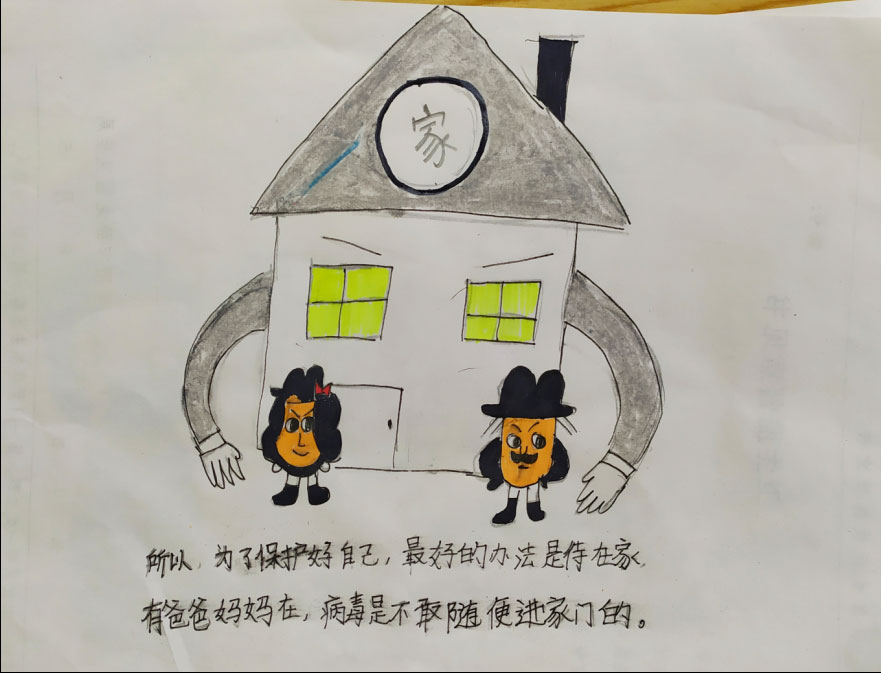 家
所以,为了保护好自己,最好的办法是待在家,
有爸爸妈妈在,病毒是不敢随便进家门的。